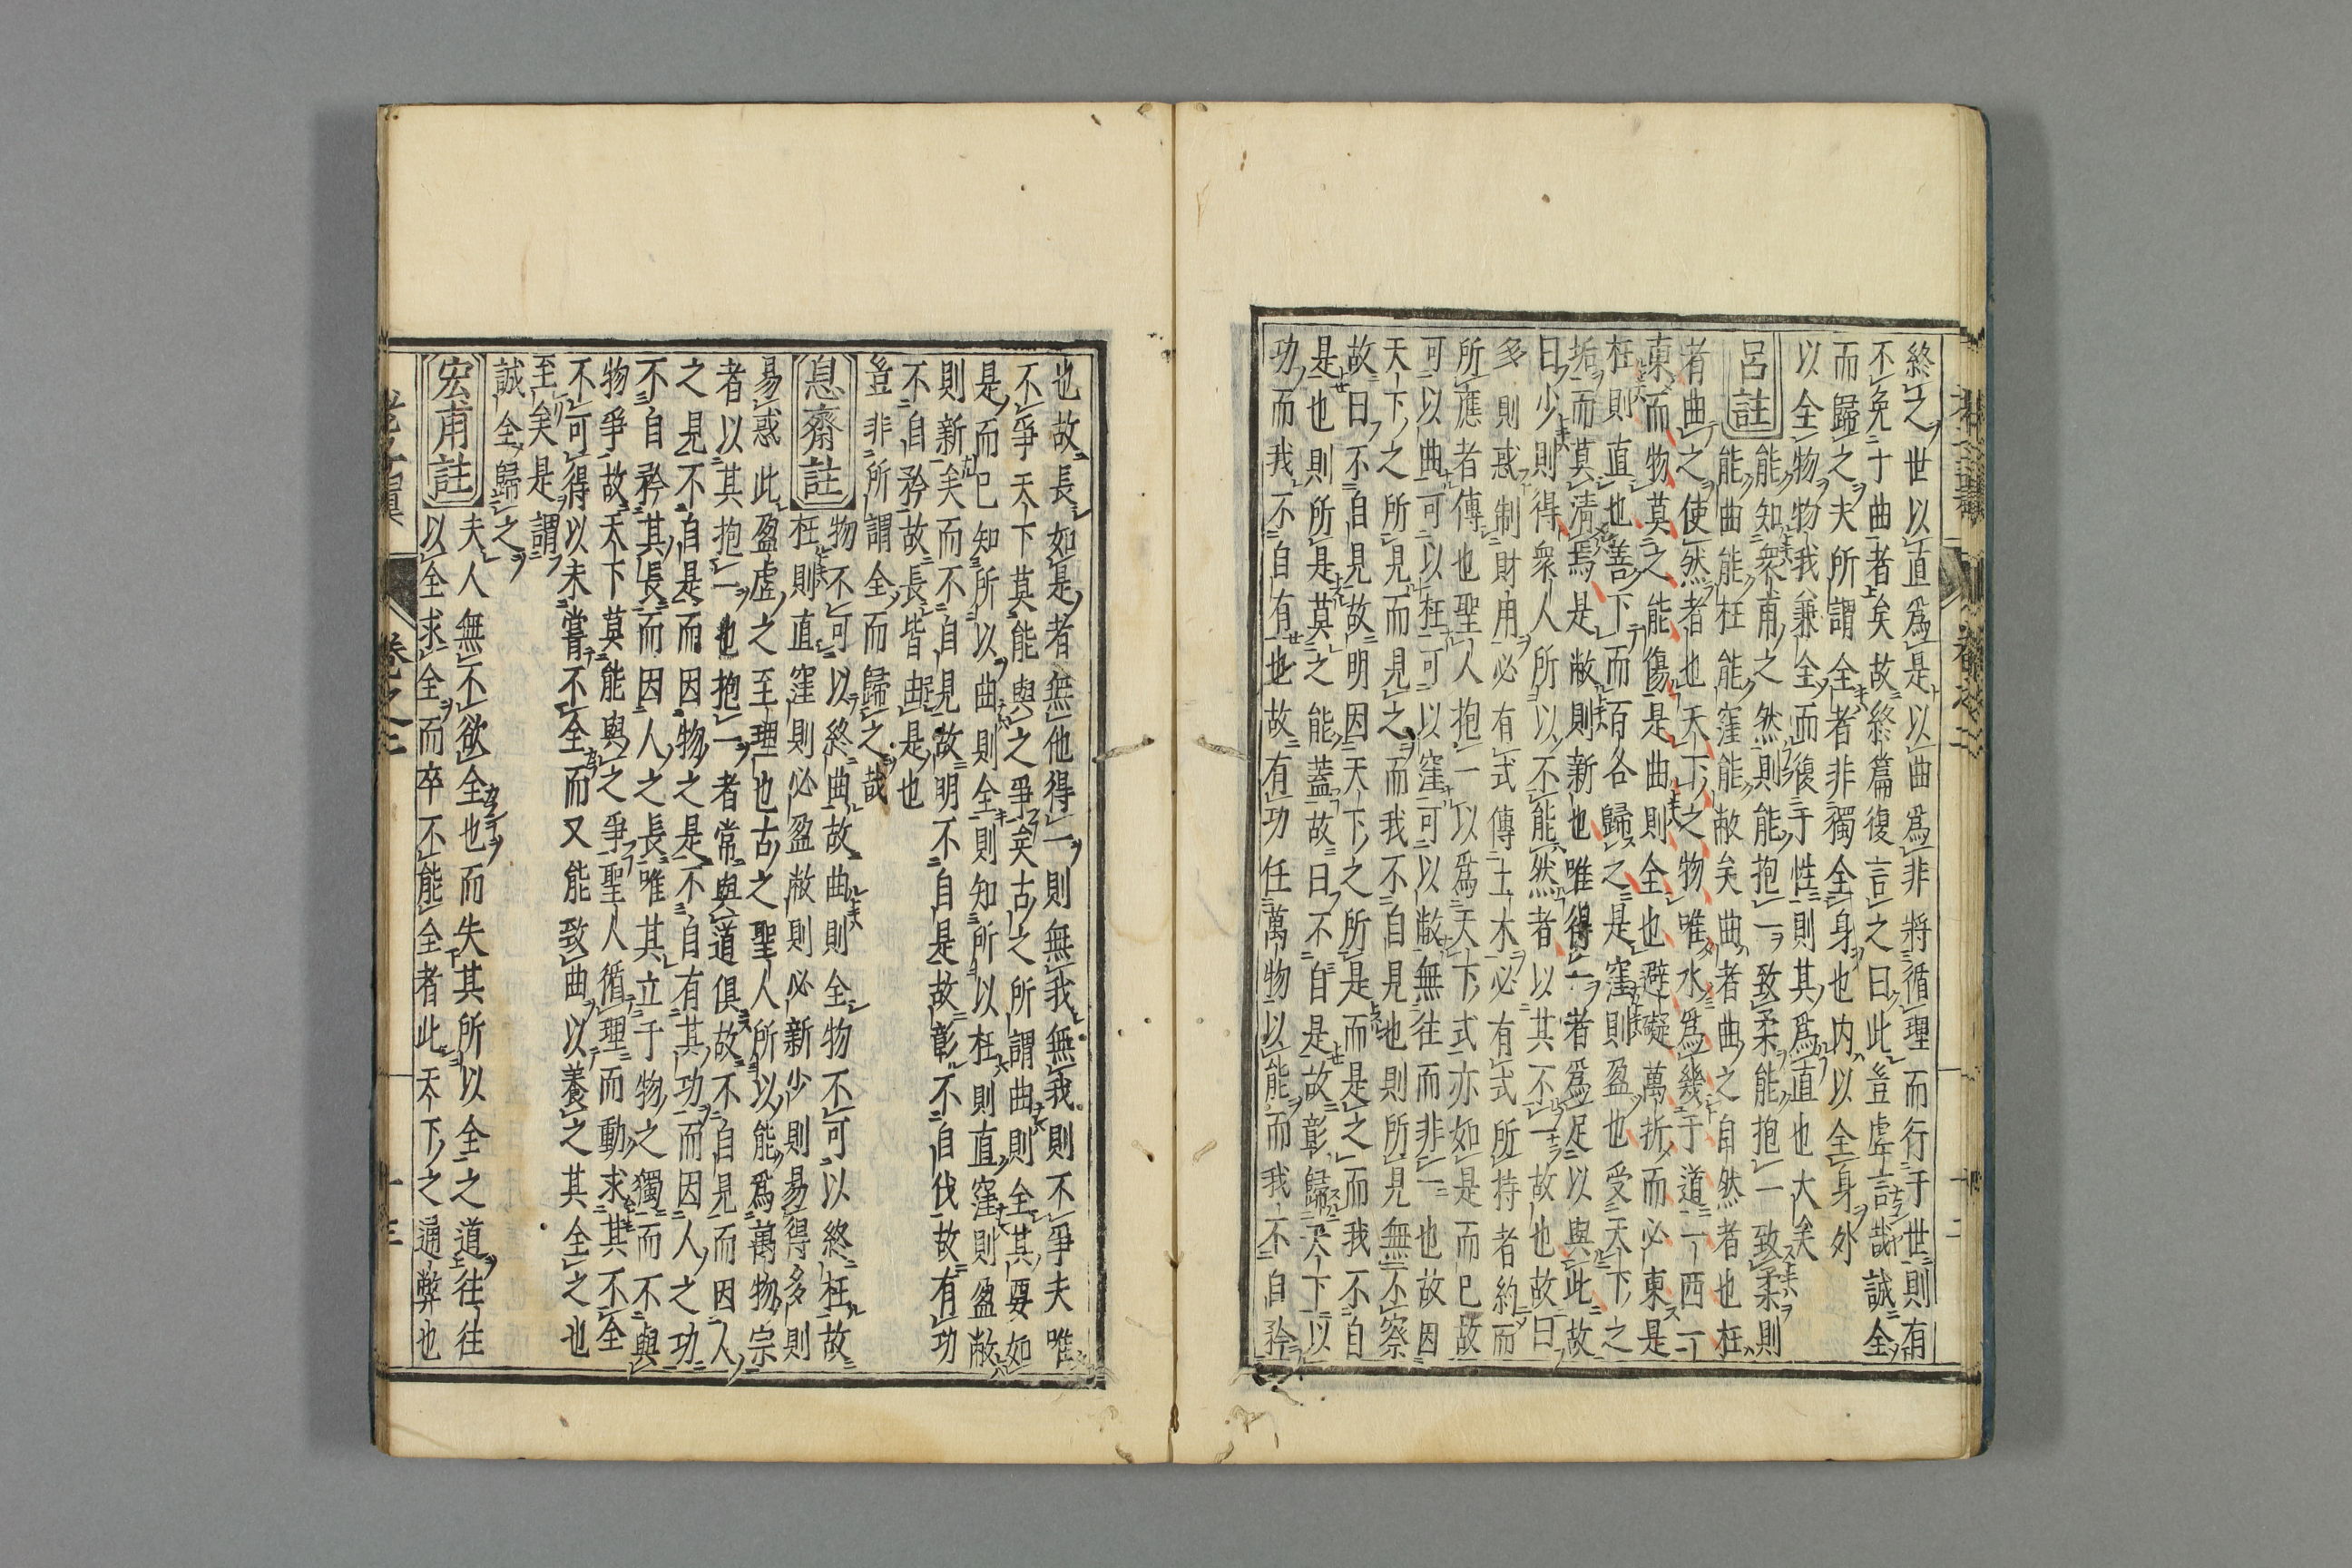 終之世以直爲是以曲爲非將循理而行于世則有
不免于曲者矣故終篇復言之曰此豈虛言哉誠全
而歸之夫所謂全者非獨全身也内以全身外
以全物物我兼全而復于性則其爲直也大矣
呂註
能知衆甫之然則能抱一致柔能抱一致柔則
能曲能枉能窪能敝矣曲者曲之自然者也枉
者曲之使然者也天下之物唯水爲幾于道一西一
東而物莫之能傷是曲則全也避礙萬折而必東是
枉則直也善下而百谷歸之是窪則盈也受天下之
垢而莫清焉是敝則新也唯得一者爲足以與此故
曰少則得衆人所以不能然者以其不一故也故曰
多則惑制財用必有式傳土木必有式所持者約而
所應者傳也聖人抱一以爲天下式亦如是而已故
可以曲可以枉可以窪可以敝無往而非一也故因
天下之所見而見之而我不自見也則所見無不察
故曰不自見故明因天下之所是而是之而我不自
是也則所是莫之能蓋故曰不自是故彰歸天下以
功而我不自有也故有功任萬物以能而我不自矜
也故長如是者無他得一則無我無我則不爭夫唯
不爭天下莫能與之爭矣古之所謂曲則全其要如
是而已知所以曲則全則知所以枉則直窪則盈敝
則新矣而不自見故明不自是故彰不自伐故有功
不自矜故長皆曲是也
豈非所謂全而歸之哉
息齋註
物不可以終曲故曲則全物不可以終枉故
枉則直窪則必盈敝則必新少則易得多則
易惑此盈虛之至理也古之聖人所以能爲萬物宗
者以其抱一也抱一者常與道俱故不自見而因人
之見不自是而因物之是不自有其功而因人之功
不自矜其長而因人之長唯其立于物之獨而不與
物爭故天下莫能與之爭聖人循理而動求其不全
不可得以未嘗不全而又能致曲以養之其全之也
至矣是謂
誠全歸之
宏甫註
夫人無不欲全也而失其所以全之道往往
以全求全而卒不能全者此天下之通弊也
老子翼
卷之二
十三